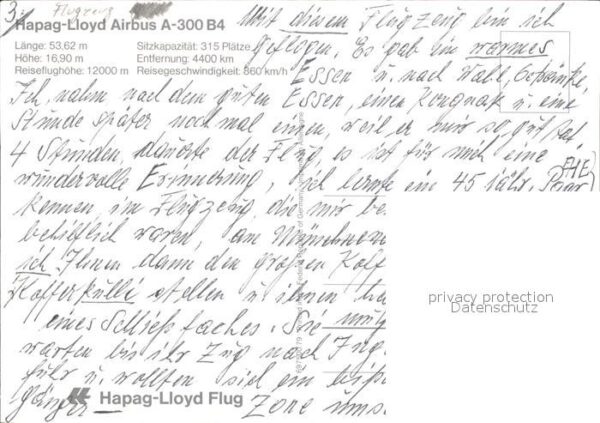 3) Flugzeug
Hapag-Lloyd Airbus A-300 B4
Länge: 53,62 m Sitzkapazität: 315 Plätze
Höhe: 16,90 m Entfernung: 4400 km
Reiseflughöhe: 12000 m Reisegeschwindigkeit: 860 km/h
Mit diesem Flugzeug bin ich
geflogen. Es gab ein warmes
Essen u. nach Wahl, Getränke.
Ich nahm nach dem guten Essen, einen Kongnak u. eine
Stunde später noch mal einen, weil er mir so gut tat
4 Stunden, dauerte der Flug, es ist für mich eine
wundervolle Erinnerung, ich lernte ein 45 jähr. Paar
EHE
kennen, im Flugzeug, die mir be
hilflich waren, am Münchner
ich Ihnen dann den großen Koff
Kofferkulli stellen u. ihnen
eines Schließfaches. Sie
warten bis ihr Zug nach Ing
fuhr u. wollten sich ein
gänger Zone ums
privacy protection
Datenschutz
Hapag-Lloyd Flug